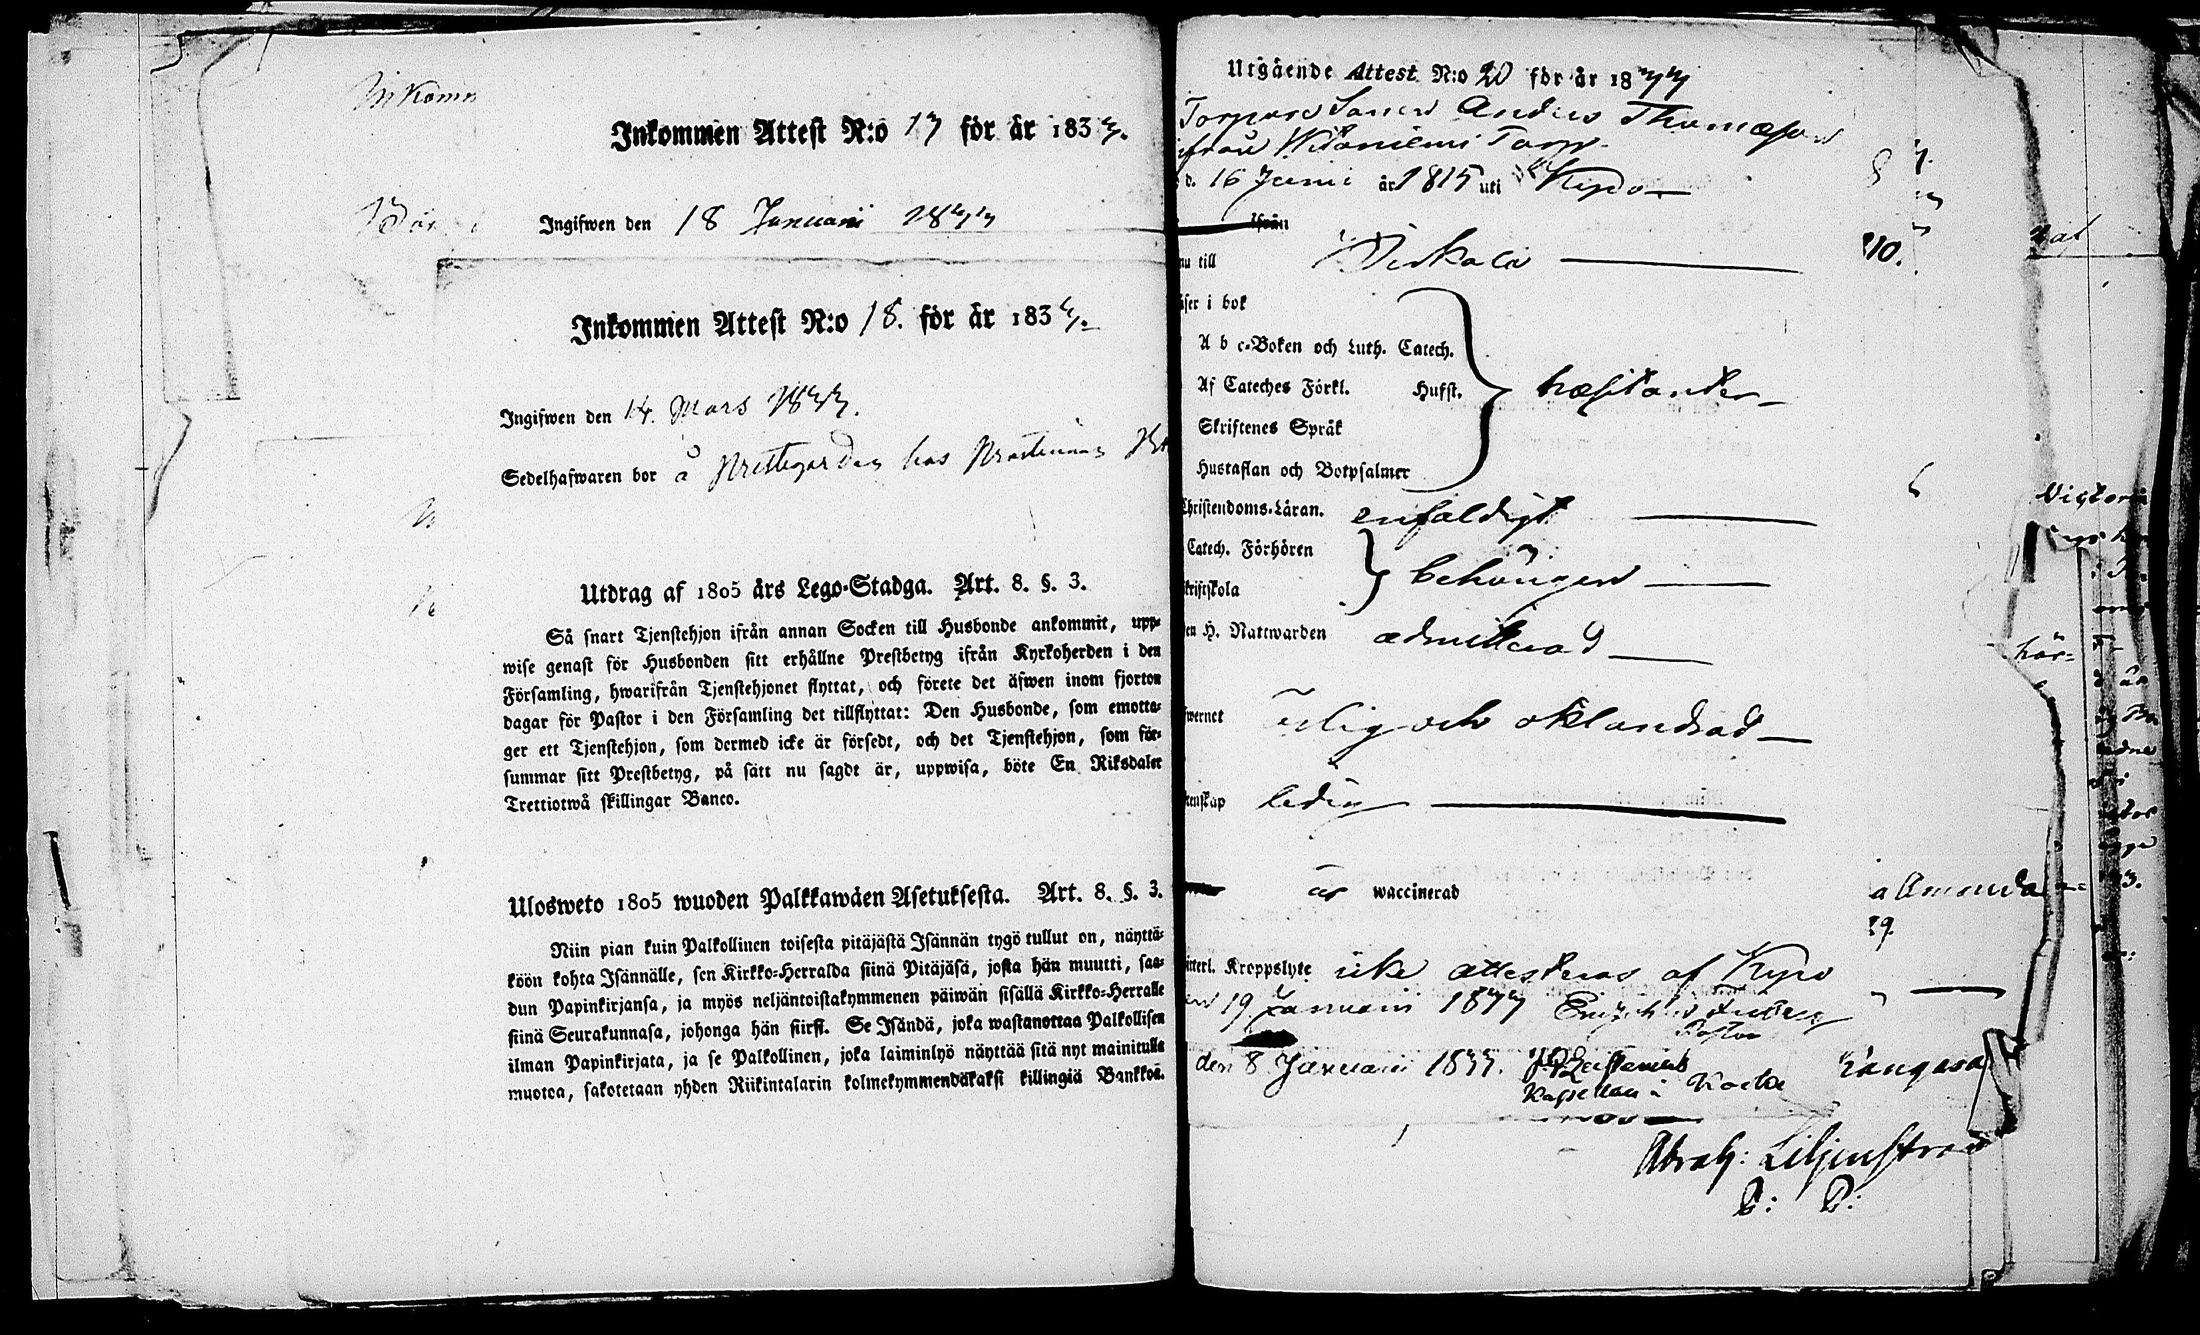 Inkomm
Inkommen Attest N:o 17 för år 1834.
Ingifwen den 18 Januarii 1844
Inkommen Attest N:o 18. för år 1834.
Ingifwen den 14. Mars 1844.
Sedelhafwaren bor å Prestegården hos Prostinnan
Utdrag af 1805 års Lego-Stadga. Art. 8. §. 3.
Så snart Tjenstehjon ifrån annan Socken till Husbonde ankommit, upp-
wise genast för Husbonden sitt erhållne Prestbetyg ifrån Kyrkoherden i den
Församling, hwarifrån Tjenstehjonet flyttat, och förete det äfwen inom fjorton
dagar för Pastor i den Församling det tillflyttat: Den Husbonde, som emotta-
ger ett Tjenstehjon, som dermed icke är försedt, och det Tjenstehjon, som för-
summar sitt Prestbetyg, på sätt nu sagdt är, uppwisa, böte En Riksdaler
Trettiotwå skillingar Banco.
Ulosweto 1805 wuoden Palkkawäen Asetuksesta. Art. 8. §. 3.
Niin pian kuin Palkollinen toisesta pitäjästä Isännän tygö tullut on, näyttä-
köön kohta Isännälle, sen Kirkko-Herralda siinä Pitäjäsä, josta hän muutti, saa-
dun Papinkirjansa, ja myös neljäntoistakymmenen päiwän sisällä Kirkko-Herralle
siinä Seurakunnasa, johonga hän siirsi. Se Isändä, joka wastanottaa Palkollisen
ilman Papinkirjata, ja se Palkollinen, joka laiminlyö näyttää sitä nyt mainitulla
muotoa, sakotetaan yhden Riikintalarin kolmekymmendäkaksi killingiä Bankkoa.
Utgående Attest N:o 20 för år 1844
Torpare Sonen Anders Thomasson
ifrån Witaniemi Torp
d. 16 Junii år 1815 uti Kyro
ifrån
nu till Birkala
10.
äser i bok
A b c-Boken och Luth. Catech.
Af Cateches Förkl. Husst. hæsitanter
Skriftenes Språk
Hustaflan och Botpsalmer
Christendoms-Läran. enfaldigt
Catech. Förhören behörigen
kriftskola
en H. Nattwarden admitterad
wernet Ärlig och oklandrad
tenskap ledig
är waccinerad
a Amanda
itterl. Kroppslyte icke attesteras af Kyro
19 Januarii 1844
Pastor
den 8 Januarii 1844.
Kapellan i
Kangasa
Abrah: Liljenstra